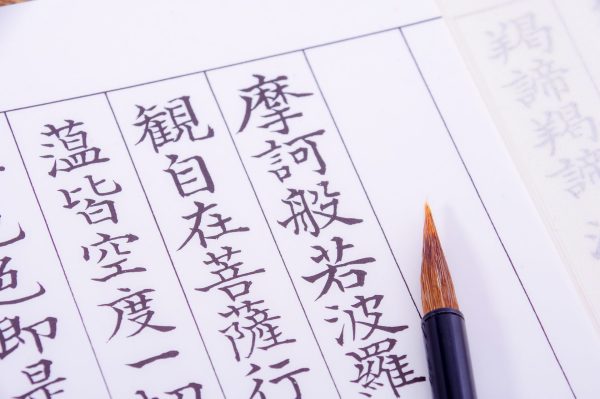 摩訶般若波羅
観自在菩薩行
薀皆空度一切
色即是
羯諦羯諦